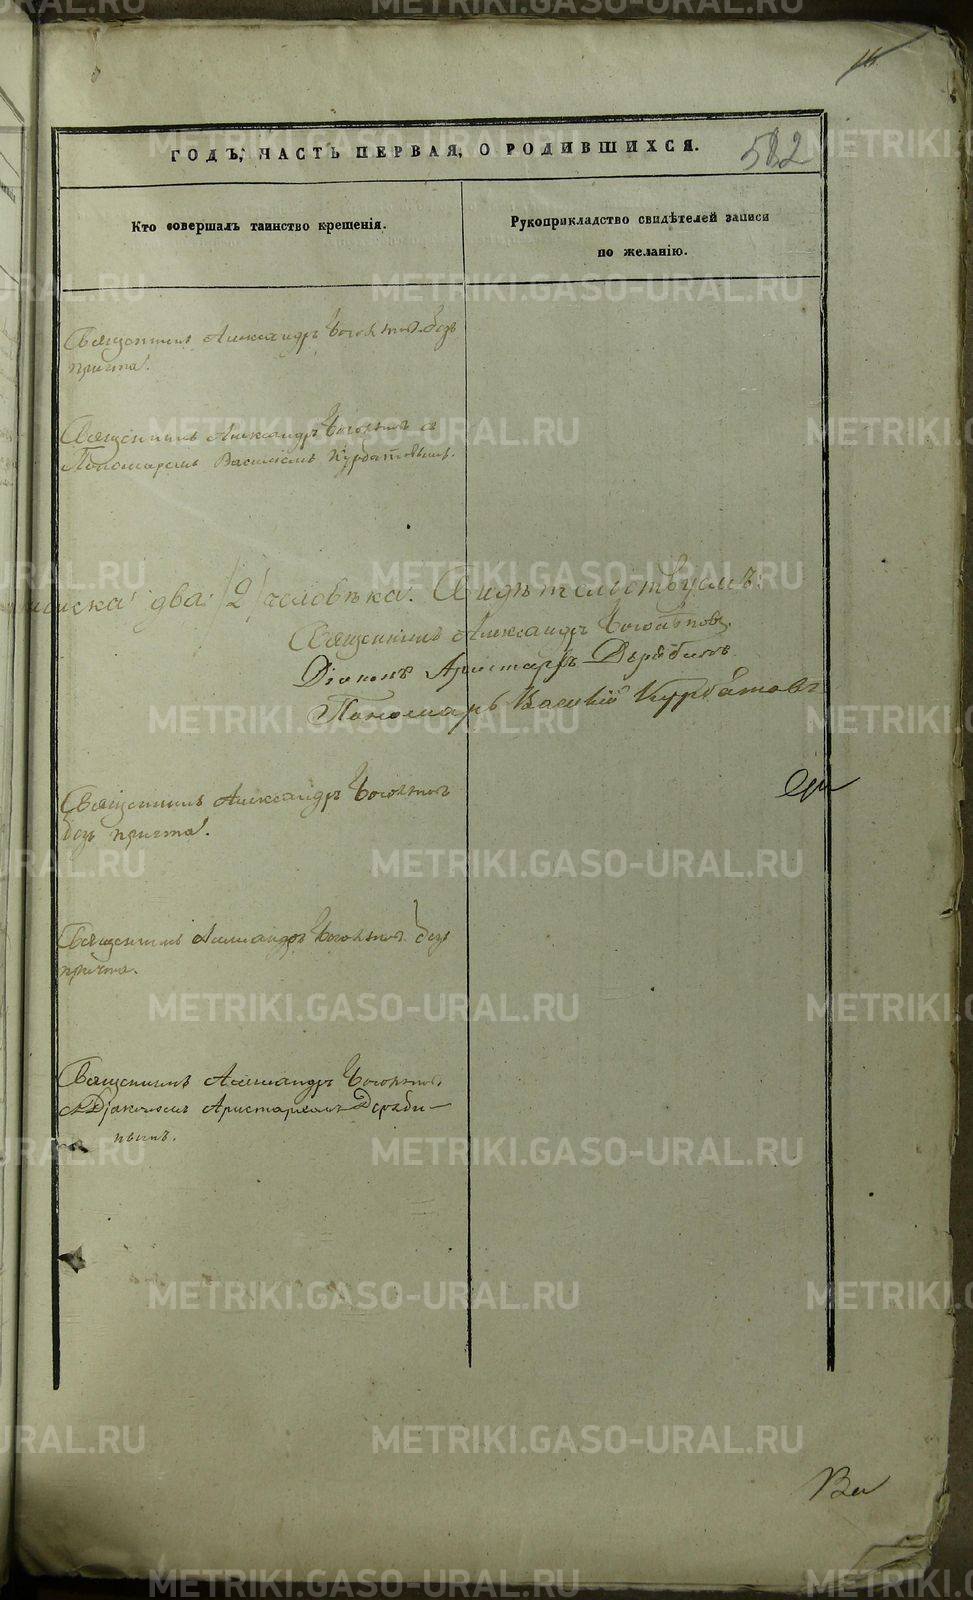 16
ГОДЪ, ЧАСТЬ ПЕРВАЯ, О РОДИВШИХСЯ.
582
Кто совершалъ таинство крещенія.
Рукоприкладство свидѣтелей записи
по желанію.
Священникъ Александръ безъ
причта.
Священникъ Александръ съ
Пономаремъ Василіемъ Курбатовымъ.
два /2/ человѣка. Свидѣтельствуемъ:
Священникъ Александръ
Діаконъ Аристархъ Дерябинъ
Пономарь Василій Курбатовъ
Священникъ Александръ
безъ причта.
Священникъ Александръ безъ
причта.
Священникъ Александръ
съ Діакономъ Аристархомъ Деряби-
нымъ.
METRIKI.GASO-URAL.RU